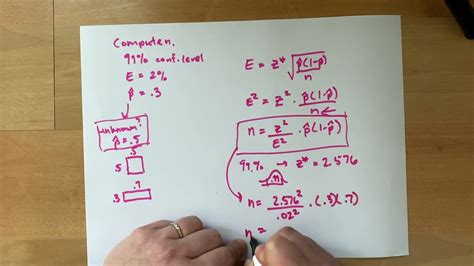 Compute n.
99% conf. level
E = 2%
p̂ = .3
unknown?
p̂ = .5
.5
.5
.7
.3
E = z* √(p̂(1-p̂)/n)
E² = z² · p̂(1-p̂)/n
n = z²/E² · p̂(1-p̂)
99% → z* = 2.576
.99
n = 2.576²/.02² · (.3)(.7)
n =